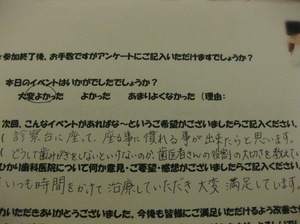 参加終了後、お手数ですがアンケートにご記入いただけますでしょうか？
本日のイベントはいかがでしたでしょうか？
大変よかった　よかった　あまりよくなかった（理由：
次回、こんなイベントがあればな～というご希望がございましたらご記入ください。
診察台に座って、座る事に慣れる事が出来たらと思います。
どうして歯みがきをしないといけないのか、歯医者さんの役割の大切さを教えて
ひかり歯科医院について何か意見・ご希望・感想がございましたらご記入ください
いつも時間をかけて治療していただき大変満足しています。
いただきありがとうございました。今後も皆様にご満足いただけるよう改善